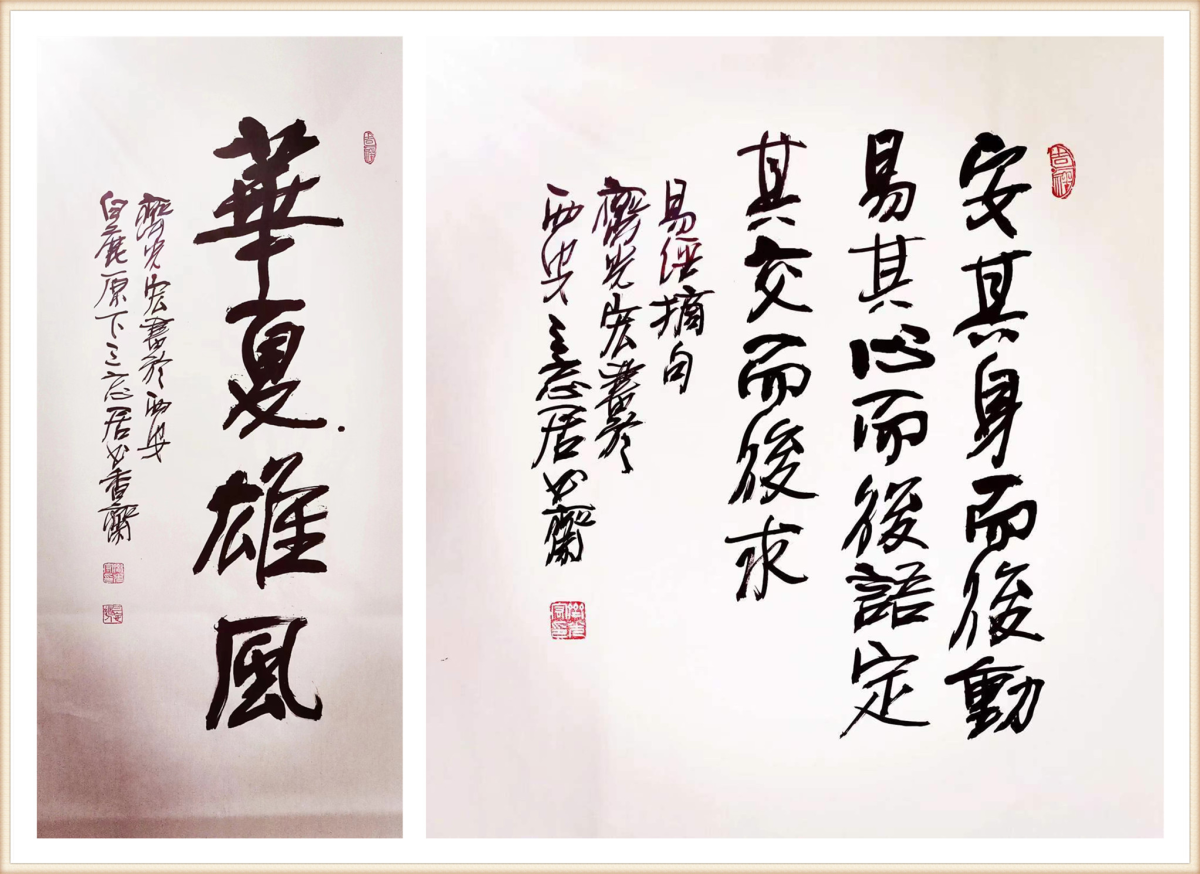 華夏雄風
齊光宏書於西安
白鹿原下三忘居必香齋
安其身而後動
易其心而後語定
其交而後求
易經摘句
齊光宏書於
西安三忘居必齋